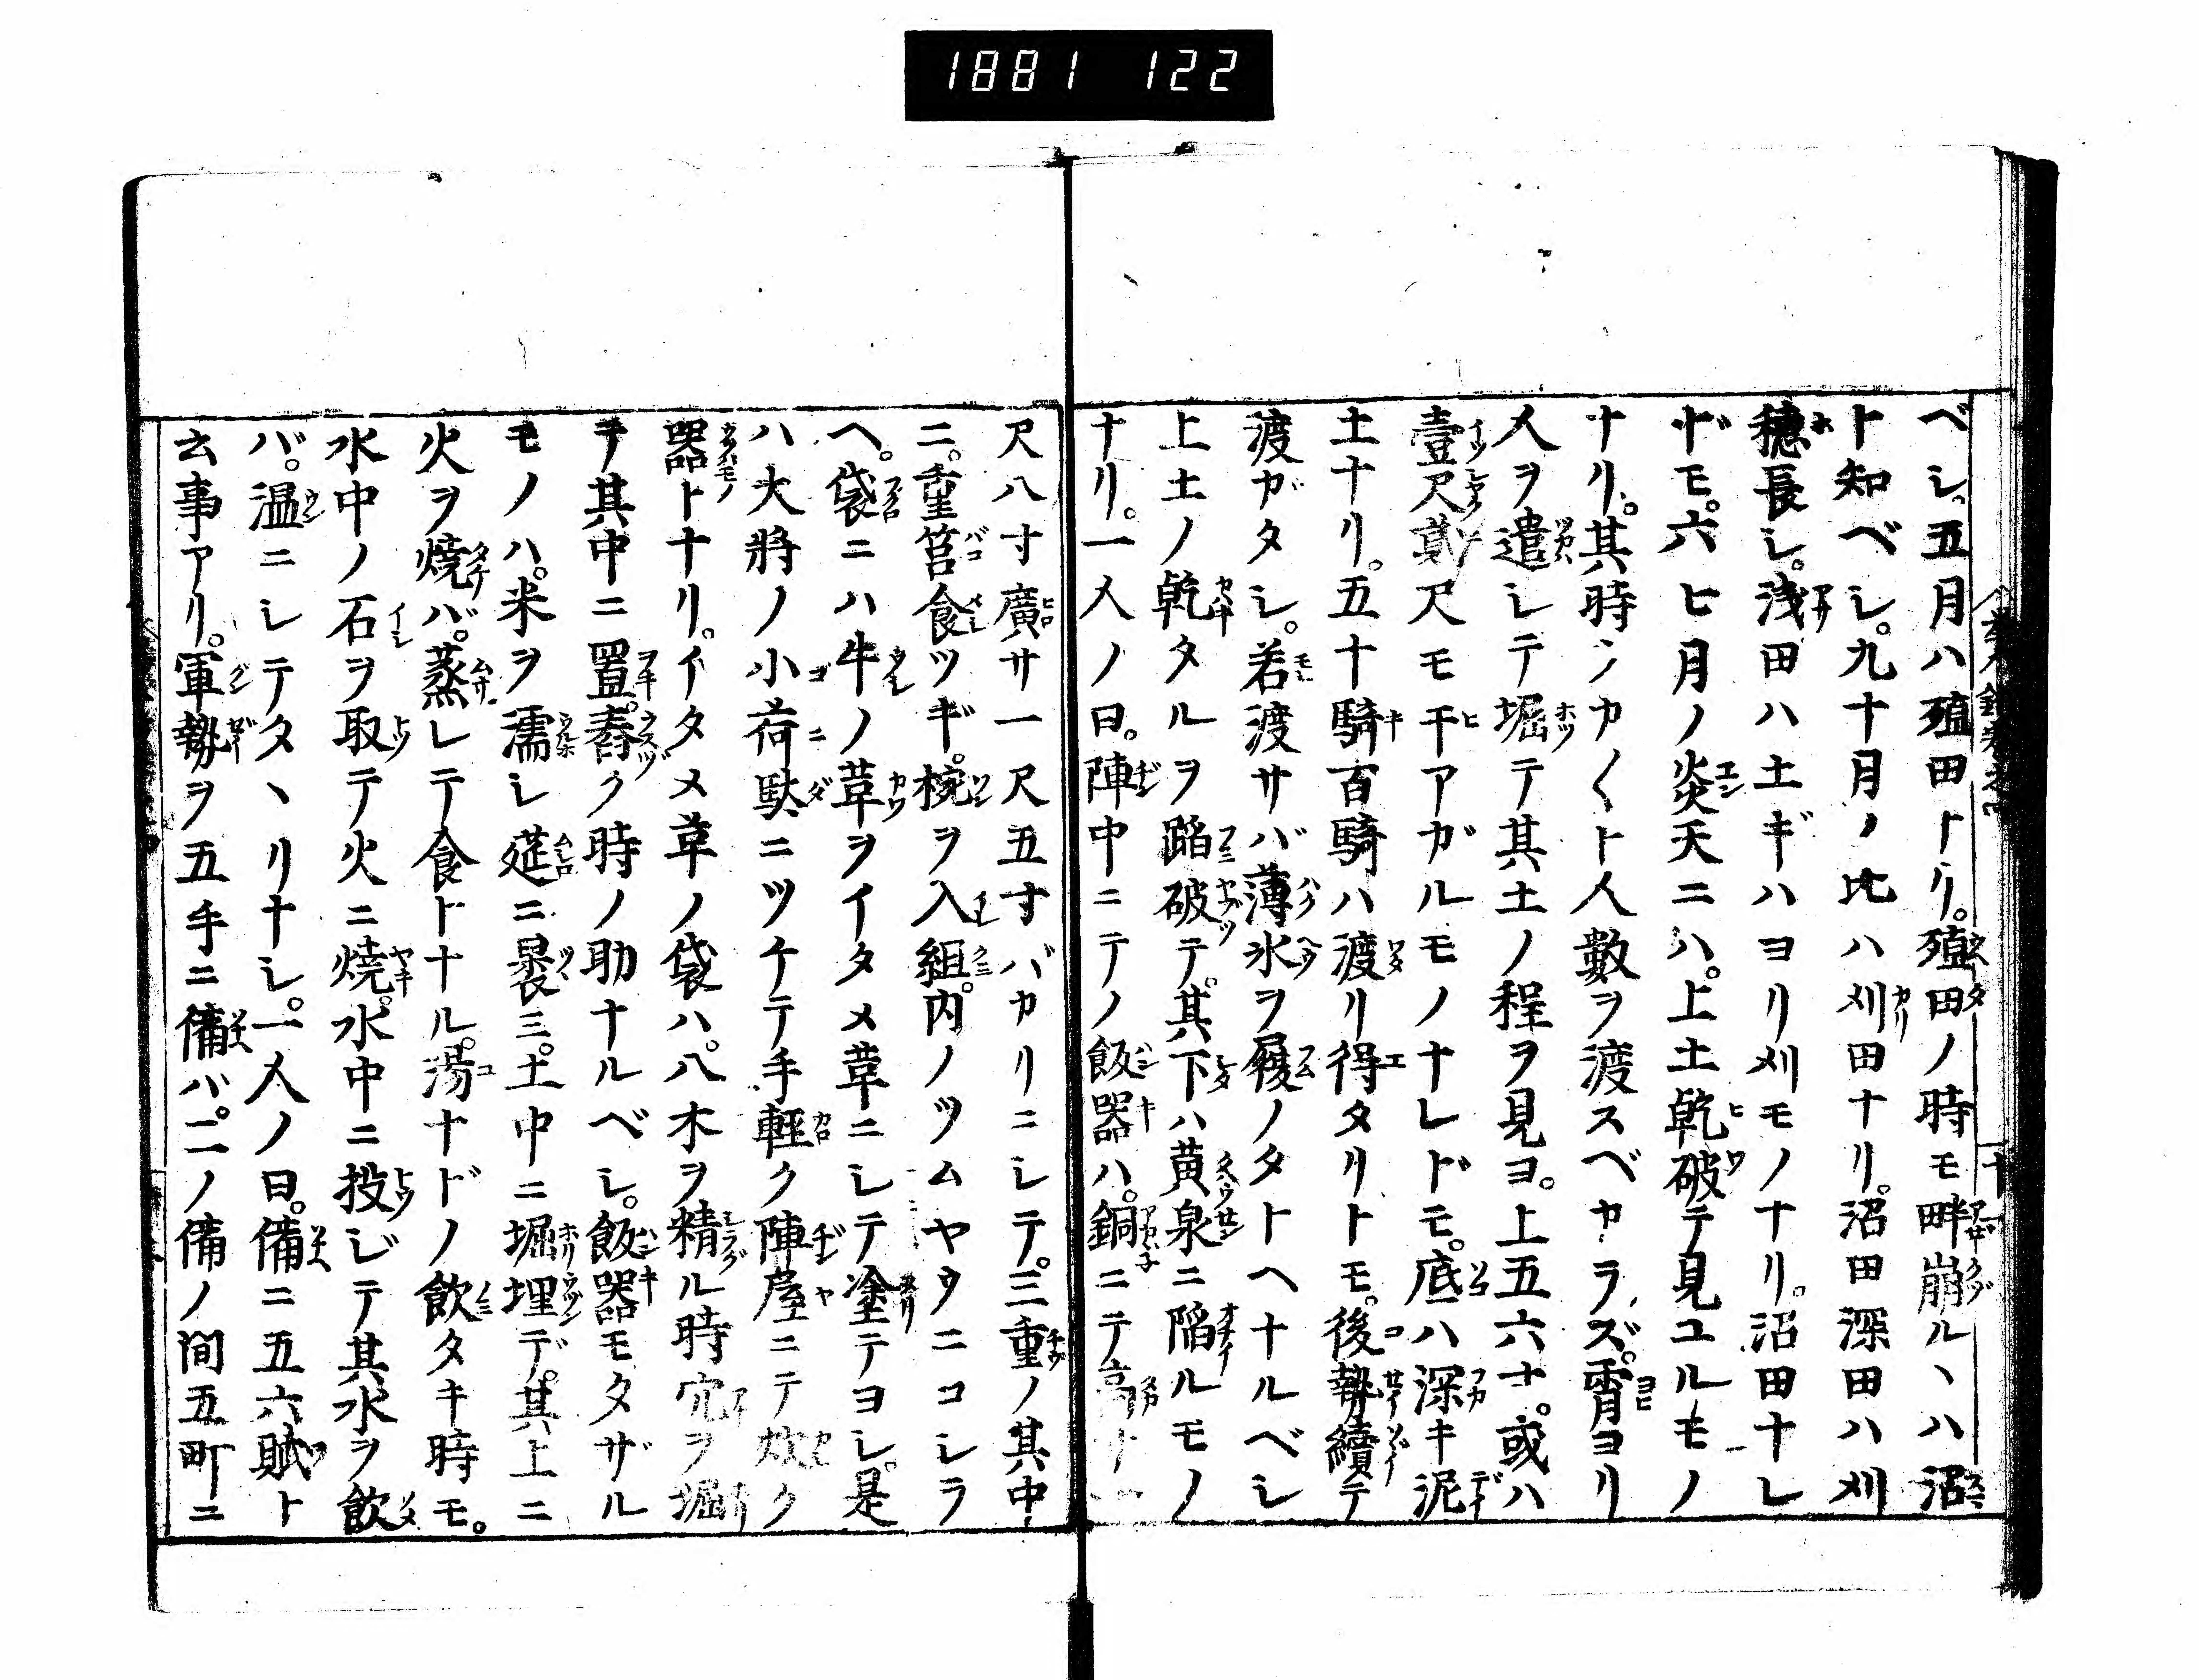 1881 122
ベシ。五月ハ殖田トリ。殖田ノ時モ畔崩ルヽハ沼
ト知ベシ。九十月ノ比ハ刈田ナリ。沼田深田ハ刈
穂長シ。浅田ハ土ギハヨリ刈モノナリ。沼田ナレ
ドモ。六七月ノ炎天ニハ。上土乾破テ見ユルモノ
ナリ。其時シカ〱ト人數ヲ渡スベカラズ。霄ヨリ
人ヲ遣シテ堀テ其土ノ程ヲ見ヨ。上五六寸。或ハ
壹尺貳尺モ干アガルモノナレドモ。底ハ深キ泥
土ナリ。五十騎百騎ハ渡リ得タリトモ。後勢續テ
渡ガタシ。若渡サバ薄氷ヲ履ノタトヘナルベシ
上土ノ乾タルヲ蹈破テ。其下ハ黄泉ニ陷ルモノ
ナリ。一人ノ曰。陣中ニテノ飯器ハ。銅ニテ高サ一
尺八寸廣サ一尺五寸バカリニシテ。三重ノ其中
ニ。重筥食ツギ。椀ヲ入組。内ノツムヤウニコシラ
ヘ。袋ニハ牛ノ革ヲイタメ革ニシテ塗テヨシ。是
ハ大將ノ小荷駄ニツケテ手輕ク陣屋ニテ炊ク
器トナリ。イタメ革ノ袋ハ。八木ヲ精ル時穴ヲ堀
テ其中ニ置。舂ク時ノ助ナルベシ。飯器モタザル
モノハ。米ヲ濡シ莚ニ褁三。土中ニ堀埋デ。其上ニ
火ヲ燒バ。蒸レテ食トナル。湯ナドノ飲タキ時モ。
水中ノ石ヲ取テ火ニ燒。水中ニ投ジテ其水ヲ飲
バ。温ニシテタヽリナシ。一人ノ曰。備ニ五六賦ト
云事アリ。軍勢ヲ五手ニ備バ。一ノ備ノ間五町ニ